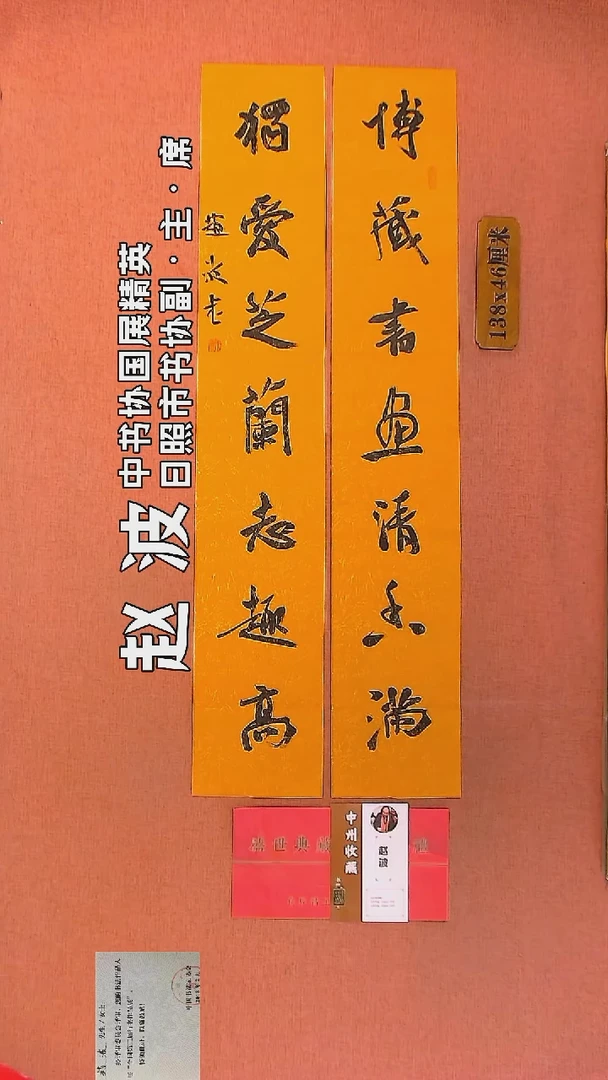 博藏書畫清香滿
獨愛芝蘭志趣高
趙波書
赵波
中书协国展精英
日照市书协副·主·席
138x46厘米
盛世典藏
中州收藏
赵波